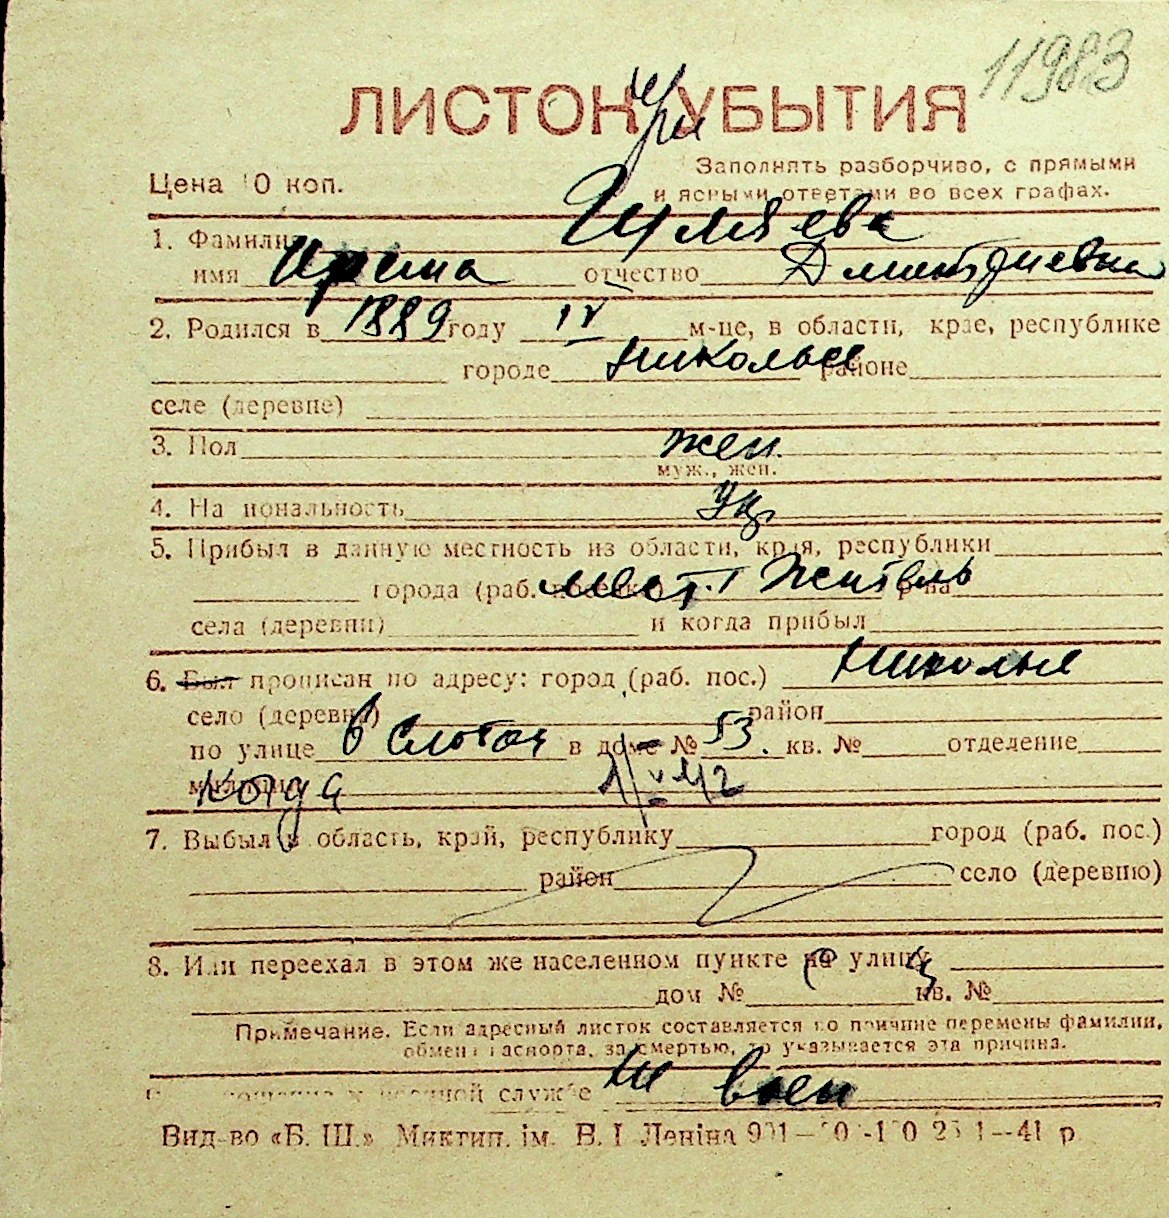 11983
ЛИСТОК УБЫТИЯ
Цена 10 коп.
Заполнять разборчиво, с прямыми
и ясными ответами во всех графах.
1. Фамилия Шмяева
имя Ирема отчество Дмитриевна
2. Родился в 1889 году IV м-це, в области, крае, республике
городе Никольев районе
селе (деревне)
3. Пол жен.
муж., жен.
4. Национальность Укр
5. Прибыл в данную местность из области, края, республики
города (раб. поселка) мест. житель р-на
села (деревни) и когда прибыл
6. Был прописан по адресу: город (раб. пос.) Николаев
село (деревня) район
по улице в доме № 53. кв. № отделение
милиции когда
7. Выбыл в область, край, республику город (раб. пос.)
район село (деревню)
8. Или переехал в этом же населенном пункте на улицу
дом № кв. №
Примечание. Если адресный листок составляется по причине перемены фамилии,
обмена паспорта, за смертью, то указывается эта причина.
службе
Вид-во «Б. Ш.» Миктип. ім. В. І. Леніна